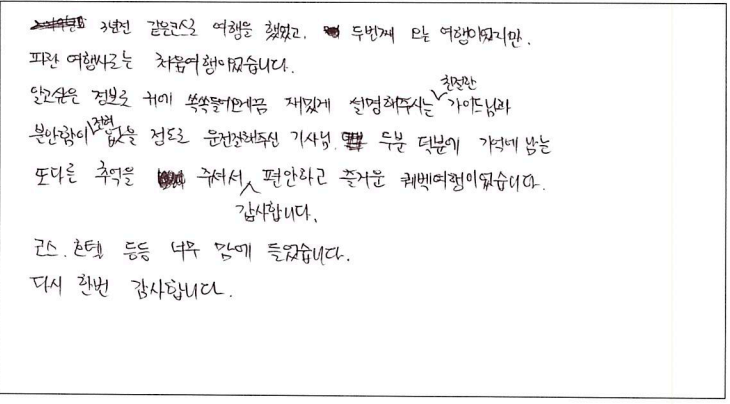 3년전 같은코스로 여행을 했었고, 두번째 오는 여행이었지만.
파란 여행사로는 처음여행이었습니다.
알고싶은 정보로 귀에 쏙쏙들어오게끔 재밌게 설명해주시는 친절한 가이드님과
불안함이 전혀 없을 정도로 운전잘해주신 기사님. 두분 덕분에 기억에 남는
또다른 추억을 주셔서 감사합니다. 편안하고 즐거운 퀘벡여행이었습니다.
코스. 호텔 등등 너무 맘에 들었습니다.
다시 한번 감사합니다.